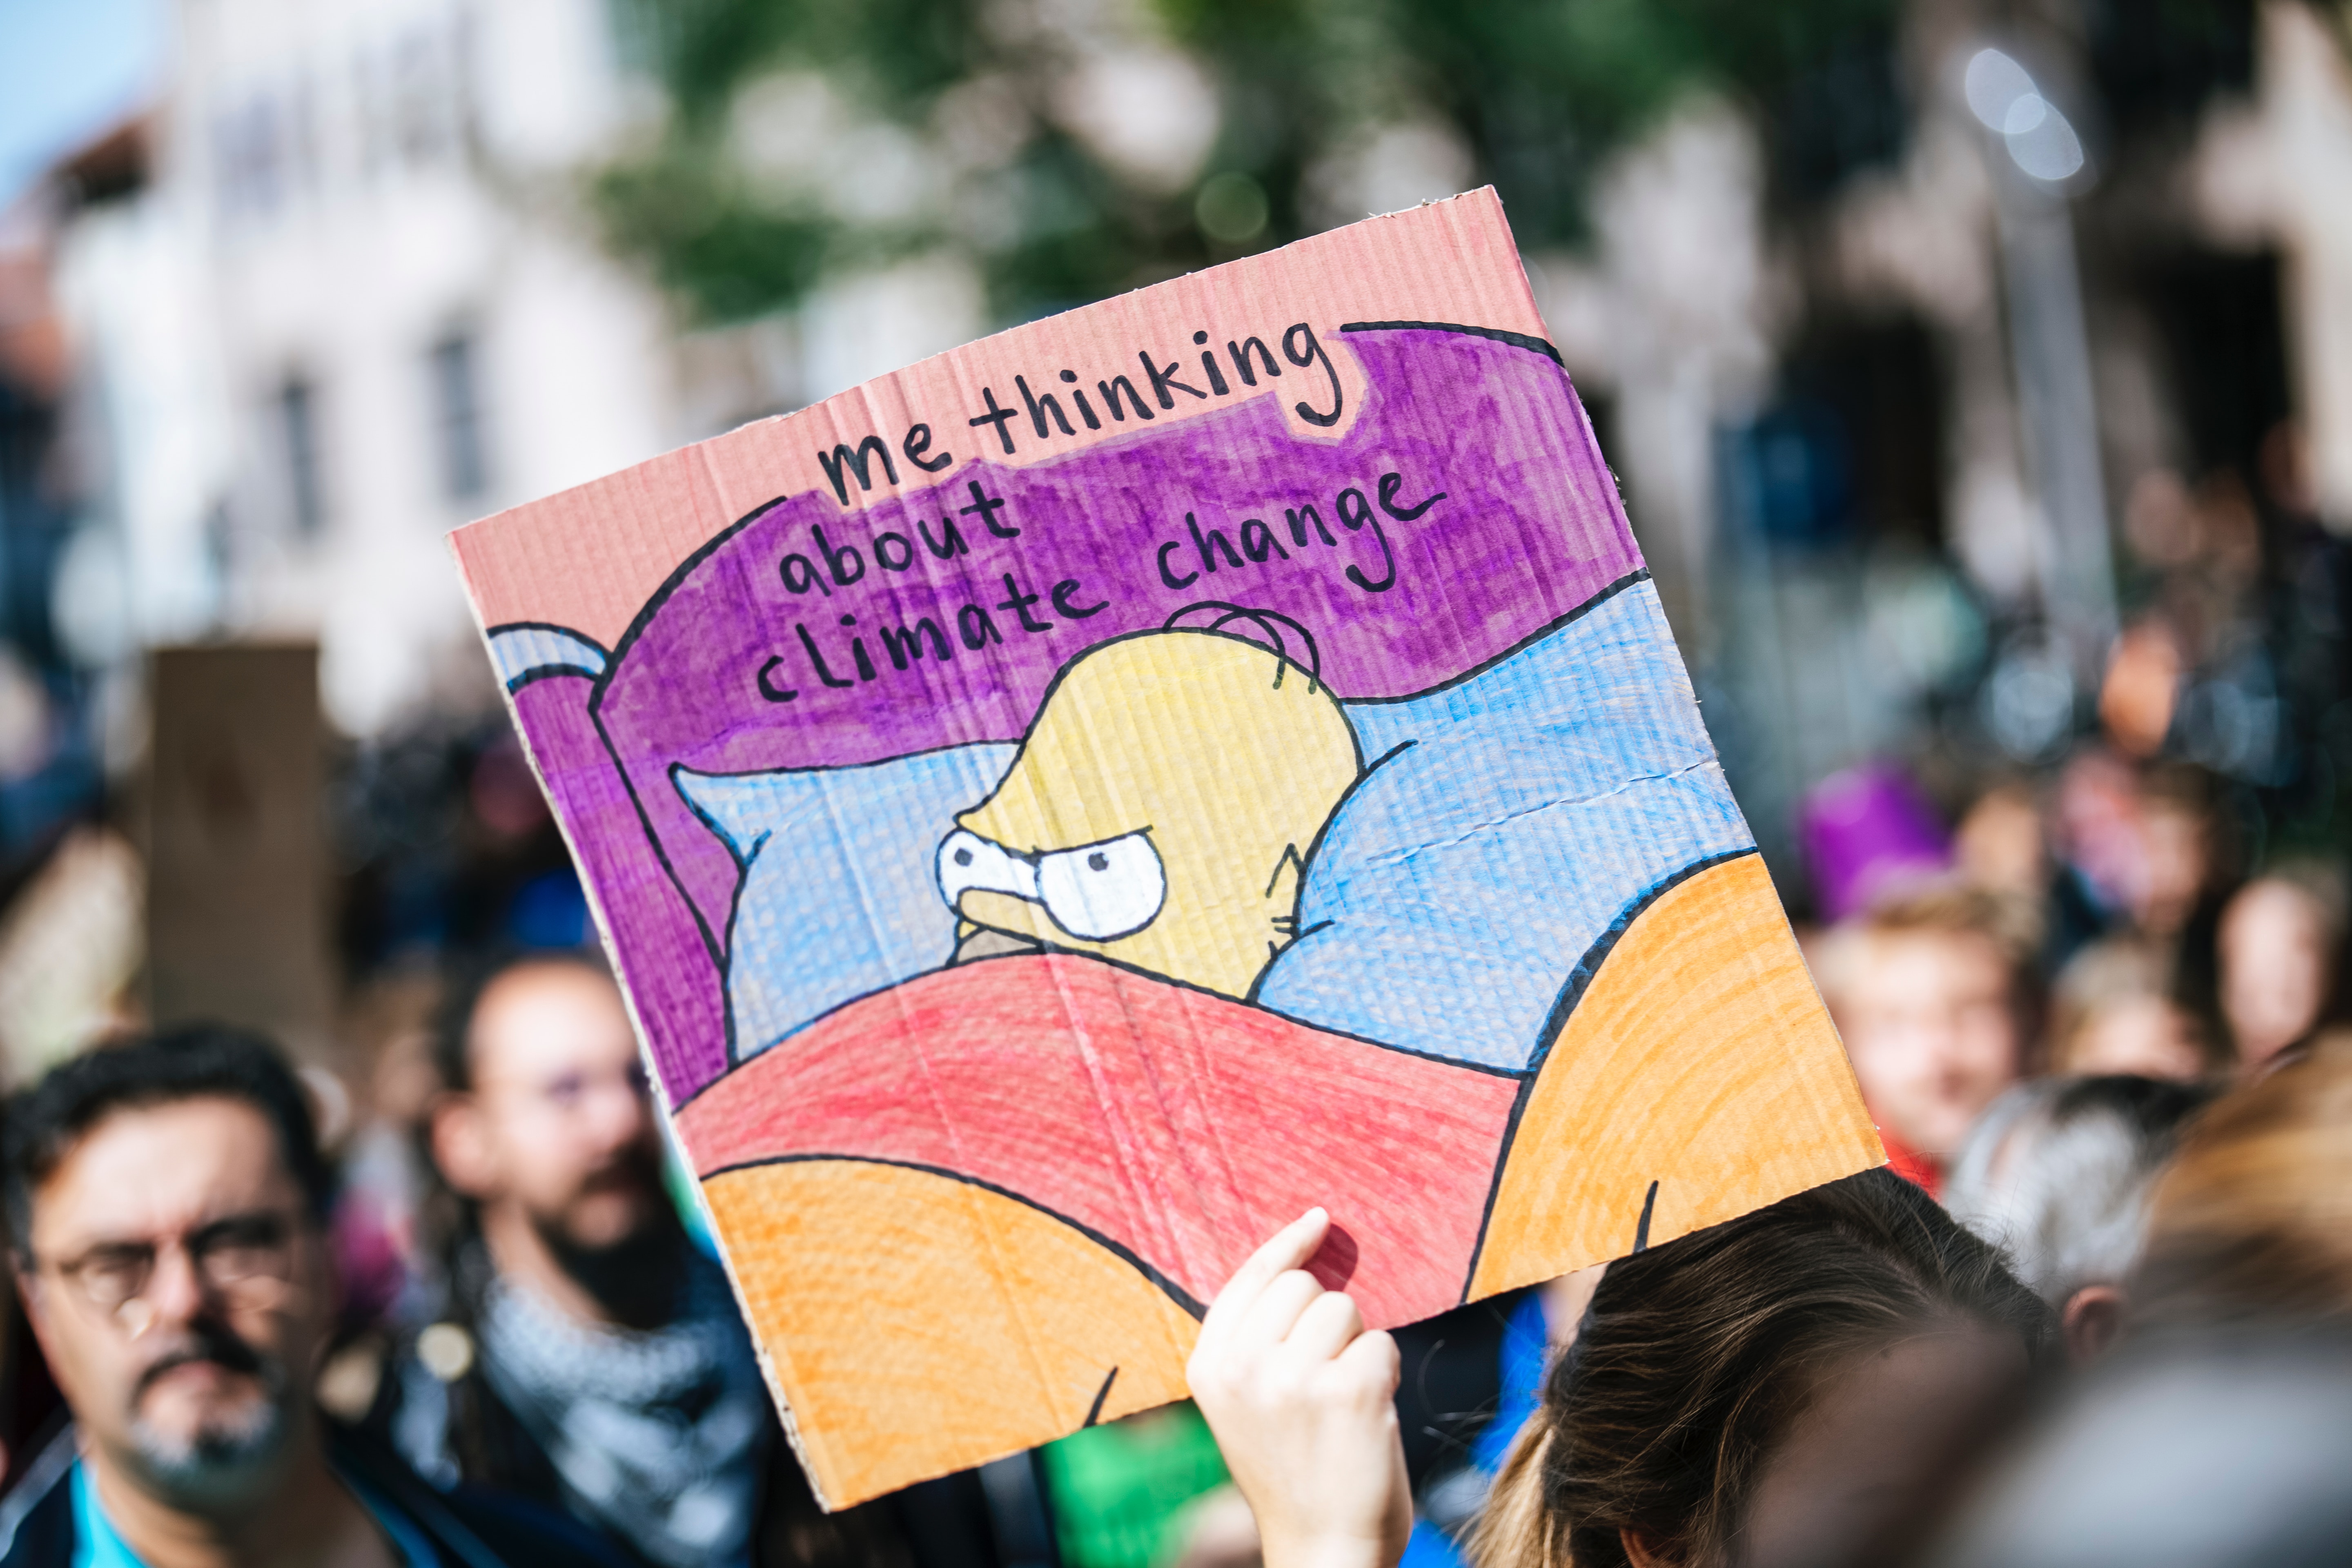 me thinking
about
climate change